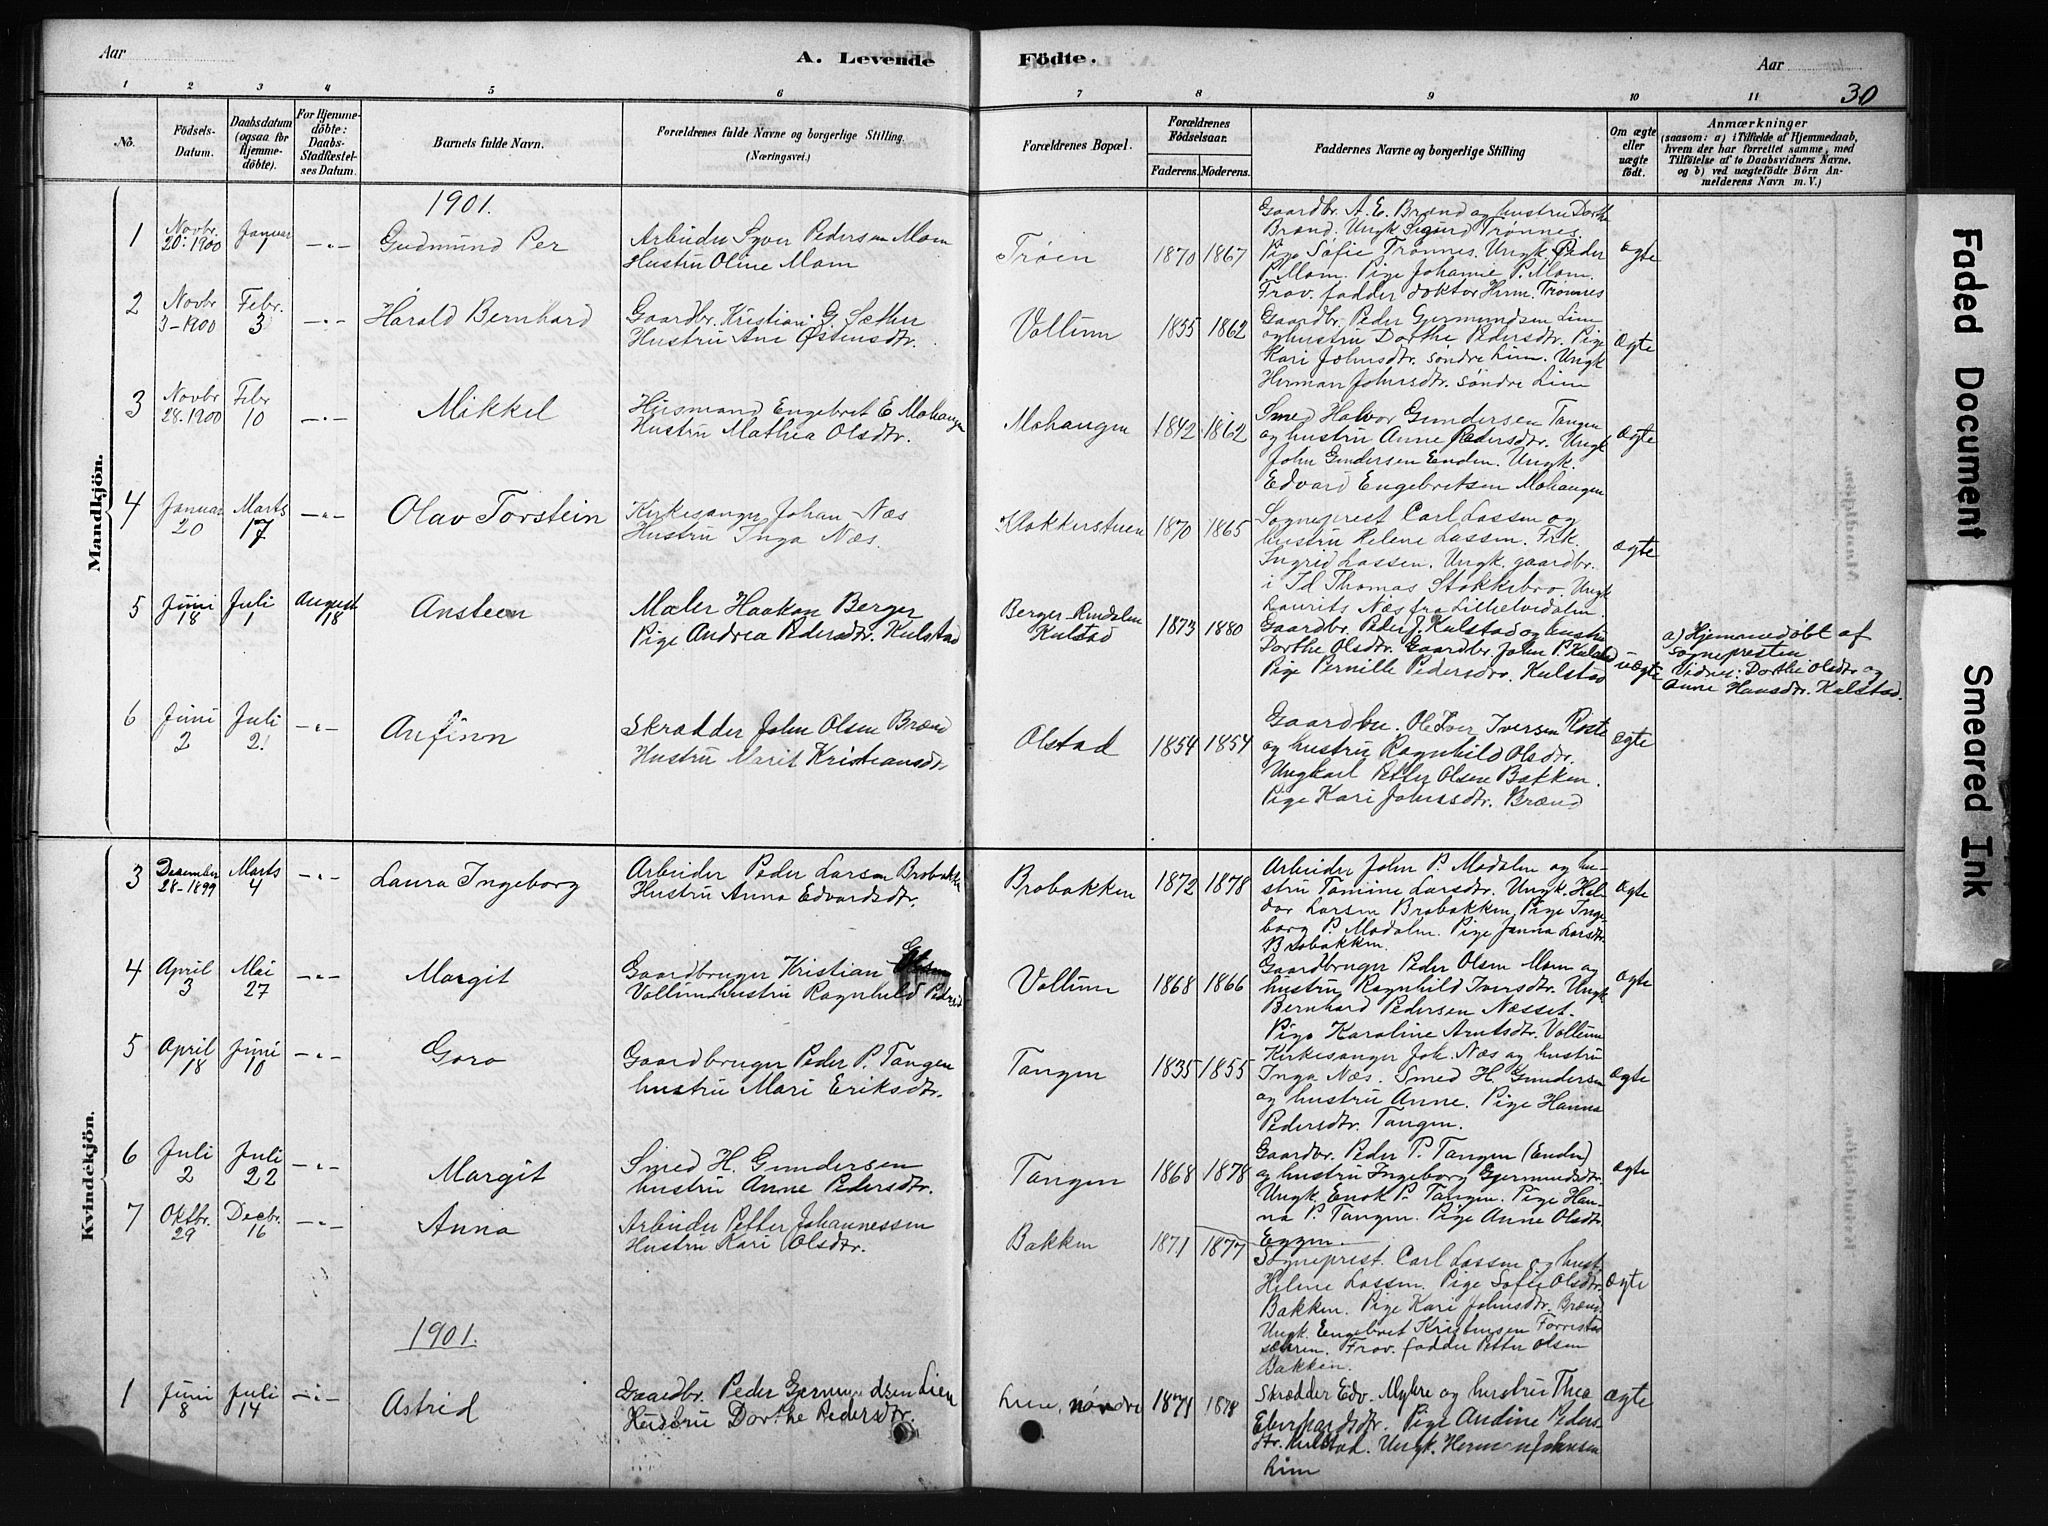 Aar
A. Levende
Födte.
Aar
30
1 2 3 4 5 6 7 8 9 10 11
No.
Födsels-
Datum.
Daabsdatum
(ogsaa for
Hjemme-
döbte).
For Hjemme-
döbte:
Daabs-
Stadfæstel-
ses Datum.
Barnets fulde Navn.
Forældrenes fulde Navne og borgerlige Stilling.
(Næringsvei.)
Forældrenes Bopæl.
Forældrenes
Födselsaar.
Faderens. Moderens.
Faddernes Navne og borgerlige Stilling
Om ægte
eller
uægte
födt.
Anmærkninger
(saasom: a) i Tilfælde af Hjemmedaab,
hvem der har forrettet samme, med
Tilföielse af to Daabsvidners Navne,
og b) ved uægtefödte Börn An-
melderens Navn m. V.)
Mandkjön.
1901.
1
Novbr.
20. 1900
Januar
Gudmund Per
Arbeider Syver Pedersen Mom
Hustru Oline Mom
Trøen
1870 1867
Gaardbr. A. E. Brænd og hustru Dorthe
Brænd. Ungk. Sigurd Trønnes.
Pige Sofie Trønnes. Ungk. Peder
P. Mom. Pige Johanne P. Mom.
Frav. fadder doktor Herm. Trønnes
ægte
2
Novbr
3-1900
Febr.
3
Harald Bernhard
Gaardbr. Kristian G. Sæther
Hustru Ane Østensdtr.
Vollum
1855 1862
Gaardbr. Peder Gjermundsen Lien
og hustru Dorthe Pedersdtr. Pige
Kari Johnsdtr. søndre Lien. Ungk
Herman Johnsdtr. søndre Lien
ægte
3
Novbr
28. 1900
Febr
10
Mikkel
Husmand Engebret E Mohaugen
Hustru Mathea Olsdtr.
Mohaugen
1842 1862
Smed Halvor Gundersen Tangen
og hustru Anne Pedersdtr. Ungk
John Gundersen Enden. Ungk.
Edvard Engebretsen Mohaugen
ægte
4
Januar
20
Marts
17
Olav Torstein
Kirkesanger Johan Næs
Hustru Inga Næs.
Klokkerstuen
1870 1865
Sogneprest Carl Lassen og
hustru Helene Lassen. Frk.
Ingrid Lassen. Ungk. gaardbr.
i Id Thomas Stokkebro. Ungk
Laurits Næs fra Lilleelvedalen
ægte
5
Juni
18
Juli
1
August
18
Ansteen
Maler Haakon Berger
Pige Andrea Pedersdtr. Kulstad
Berger Rendalen
Kulstad
1873 1880
Gaardbr. Peder J. Kulstad og hustru
Dorthe Olsdtr. Gaardbr. John P. Kulstad
Pige Pernille Pedersdtr. Kulstad
uægte
a) Hjemmedøbt af
sognepresten
Vidner: Dorthe Olsdtr og
Anne Hansdtr. Kulstad.
6
Juni
2
Juli
21
Anfinn
Skrædder John Olsen Brænd
Hustru Marit Kristiansdtr
Olstad
1854 1854
Gaardbr. Ole Iver Iversen Roste
og hustru Ragnhild Olsdtr.
Ungkarl Petter Olsen Bakken.
Pige Kari Johnsdtr. Brænd
ægte
Kvindekjön.
3
Desember
28-1899
Marts
4
Laura Ingeborg
Arbeider Peder Larsen Brobakken
Hustru Anna Edvardsdtr.
Brobakken
1872 1878
Arbeider John P. Modalen og hu-
stru Tomine Larsdtr. Ungk. Hal-
dor Larsen Brobakken. Pige Inge
borg P. Modalen. Pige Janna Larsdtr.
Brobakken.
ægte
4
April
3
Mai
27
Margit
Gaardbruger Kristian G
Vollum hustru Ragnhild Pedersdtr
Vollum
1868 1866
Gaardbruger Peder Olsen Mom og
hustru Ragnhild Iversdtr. Ungk
Bernhard Pedersen Næsset.
Pige Karoline Arntsdtr. Vollum
ægte
5
April
18
Juni
10
Goro
Gaardbruger Peder P. Tangen
hustru Mari Eriksdtr.
Tangen
1835 1855
Kirkesanger Joh. Næs og hustru
Inga Næs. Smed H. Gundersen
og hustru Anne. Pige Hanna
Pedersdtr. Tangen.
ægte
6
Juli
2
Juli
22
Margit
Smed H. Gundersen
hustru Anne Pedersdtr.
Tangen
1868 1878
Gaardbr. Peder P. Tangen (Enden)
og hustru Ingeborg Gjermundsdtr.
Ungk. Enok P. Tangen. Pige Han-
na P. Tangen. Pige Anne Olsdtr
Eggen.
ægte
7
Oktbr.
29
Decbr.
16
Anna
Arbeider Petter Johannessen
Hustru Kari Olsdtr.
Bakken
1871 1877
Sogneprest. Carl Lassen og hust.
Helene Lassen. Pige Sofie Olsdtr.
Bakken. Pige Kari Johnsdtr. Brænd
Ungk. Engebret Kristensen Forrestad
sætren. Frav. fadder Petter Olsen
Bakken.
ægte
1901.
1
Juni
8
Juli
14
Astrid
Gaardbr. Peder Germundsen Lien
Hustru Dorthe Pedersdtr.
Lien, nørdre
1871 1878
Skrædder Edv. Myhre og hustru Thea
Eberhardsdtr. Pige Andine Peders
dtr. Kulstad. Ungk. Herman Johnsen
Lien
ægte
Faded Document
Smeared Ink